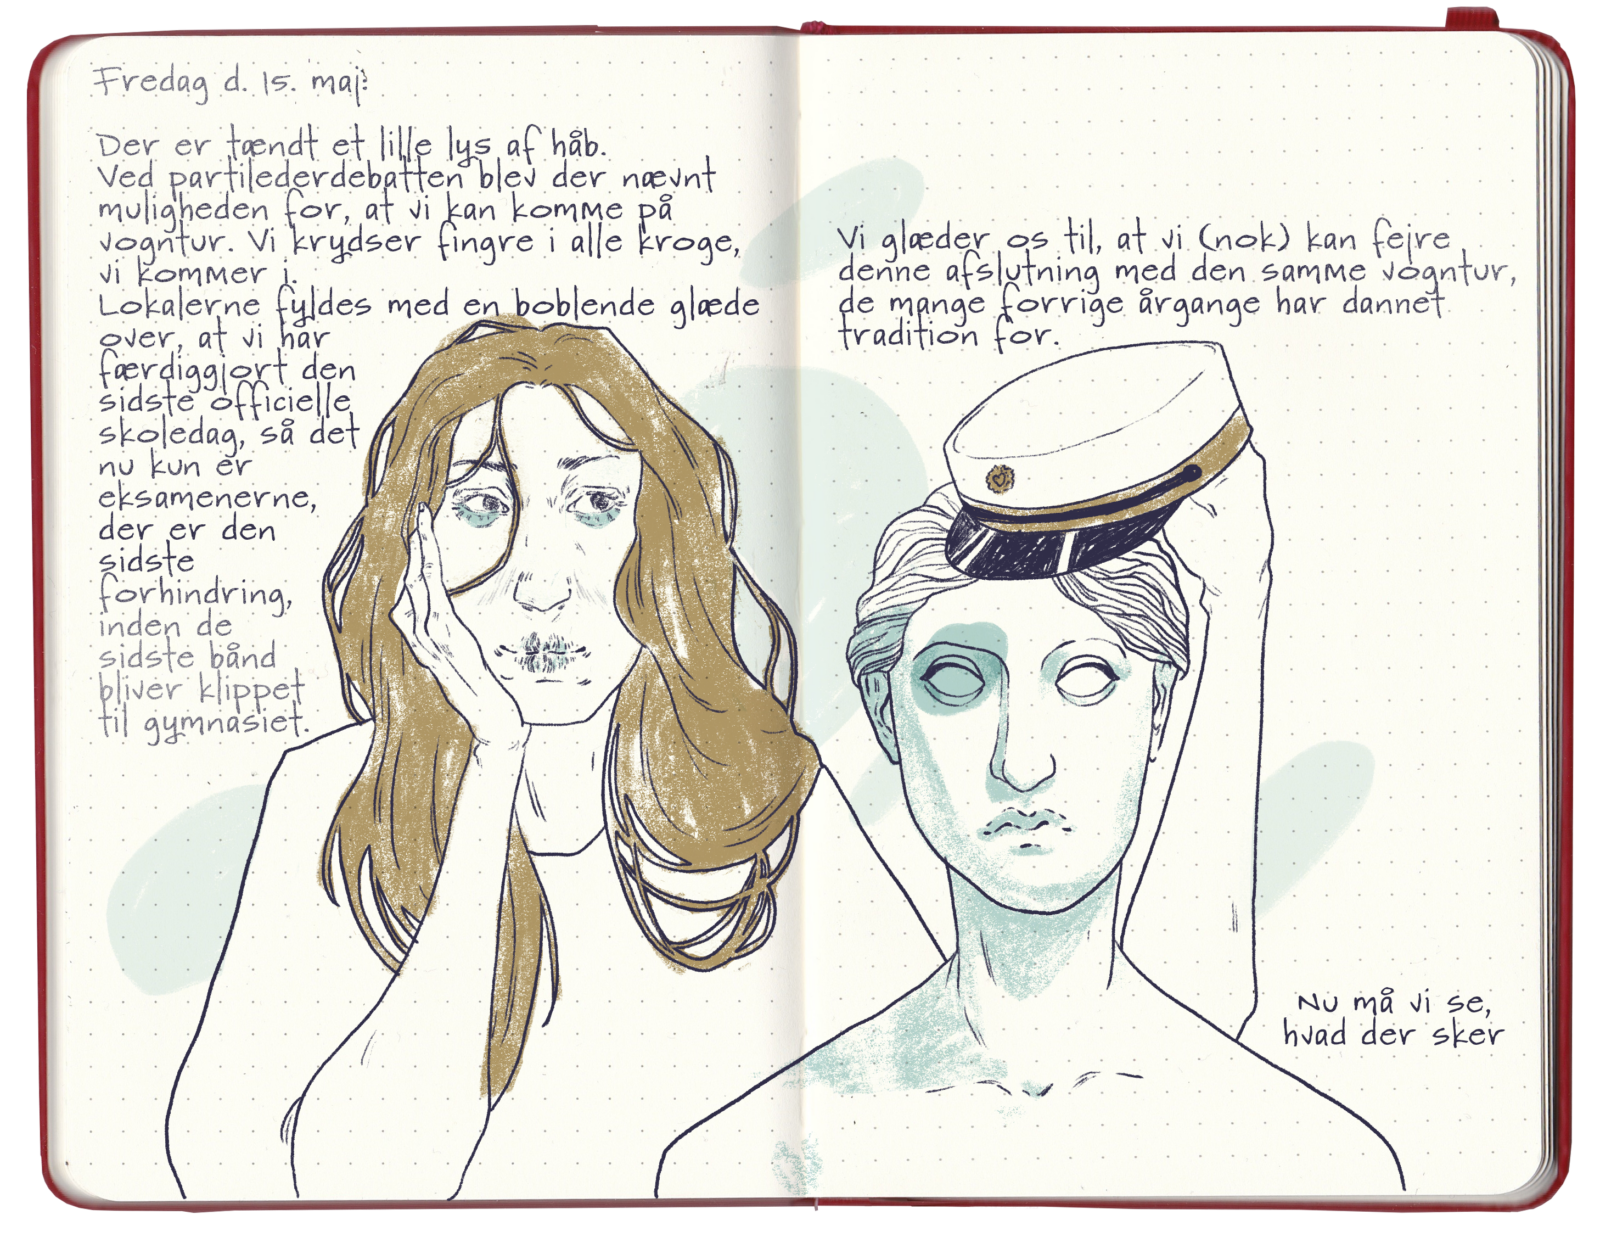 Fredag d. 15. maj:
Der er tændt et lille lys af håb.
Ved partilederdebatten blev der nævnt
muligheden for, at vi kan komme på
vogntur. Vi krydser fingre i alle kroge,
vi kommer i.
Lokalerne fyldes med en boblende glæde
over, at vi har
færdiggjort den
sidste officielle
skoledag, så det
nu kun er
eksamenerne,
der er den
sidste
forhindring,
inden de
sidste bånd
bliver klippet
til gymnasiet.
Vi glæder os til, at vi (nok) kan fejre
denne afslutning med den samme vogntur,
de mange forrige årgange har dannet
tradition for.
Nu må vi se,
hvad der sker